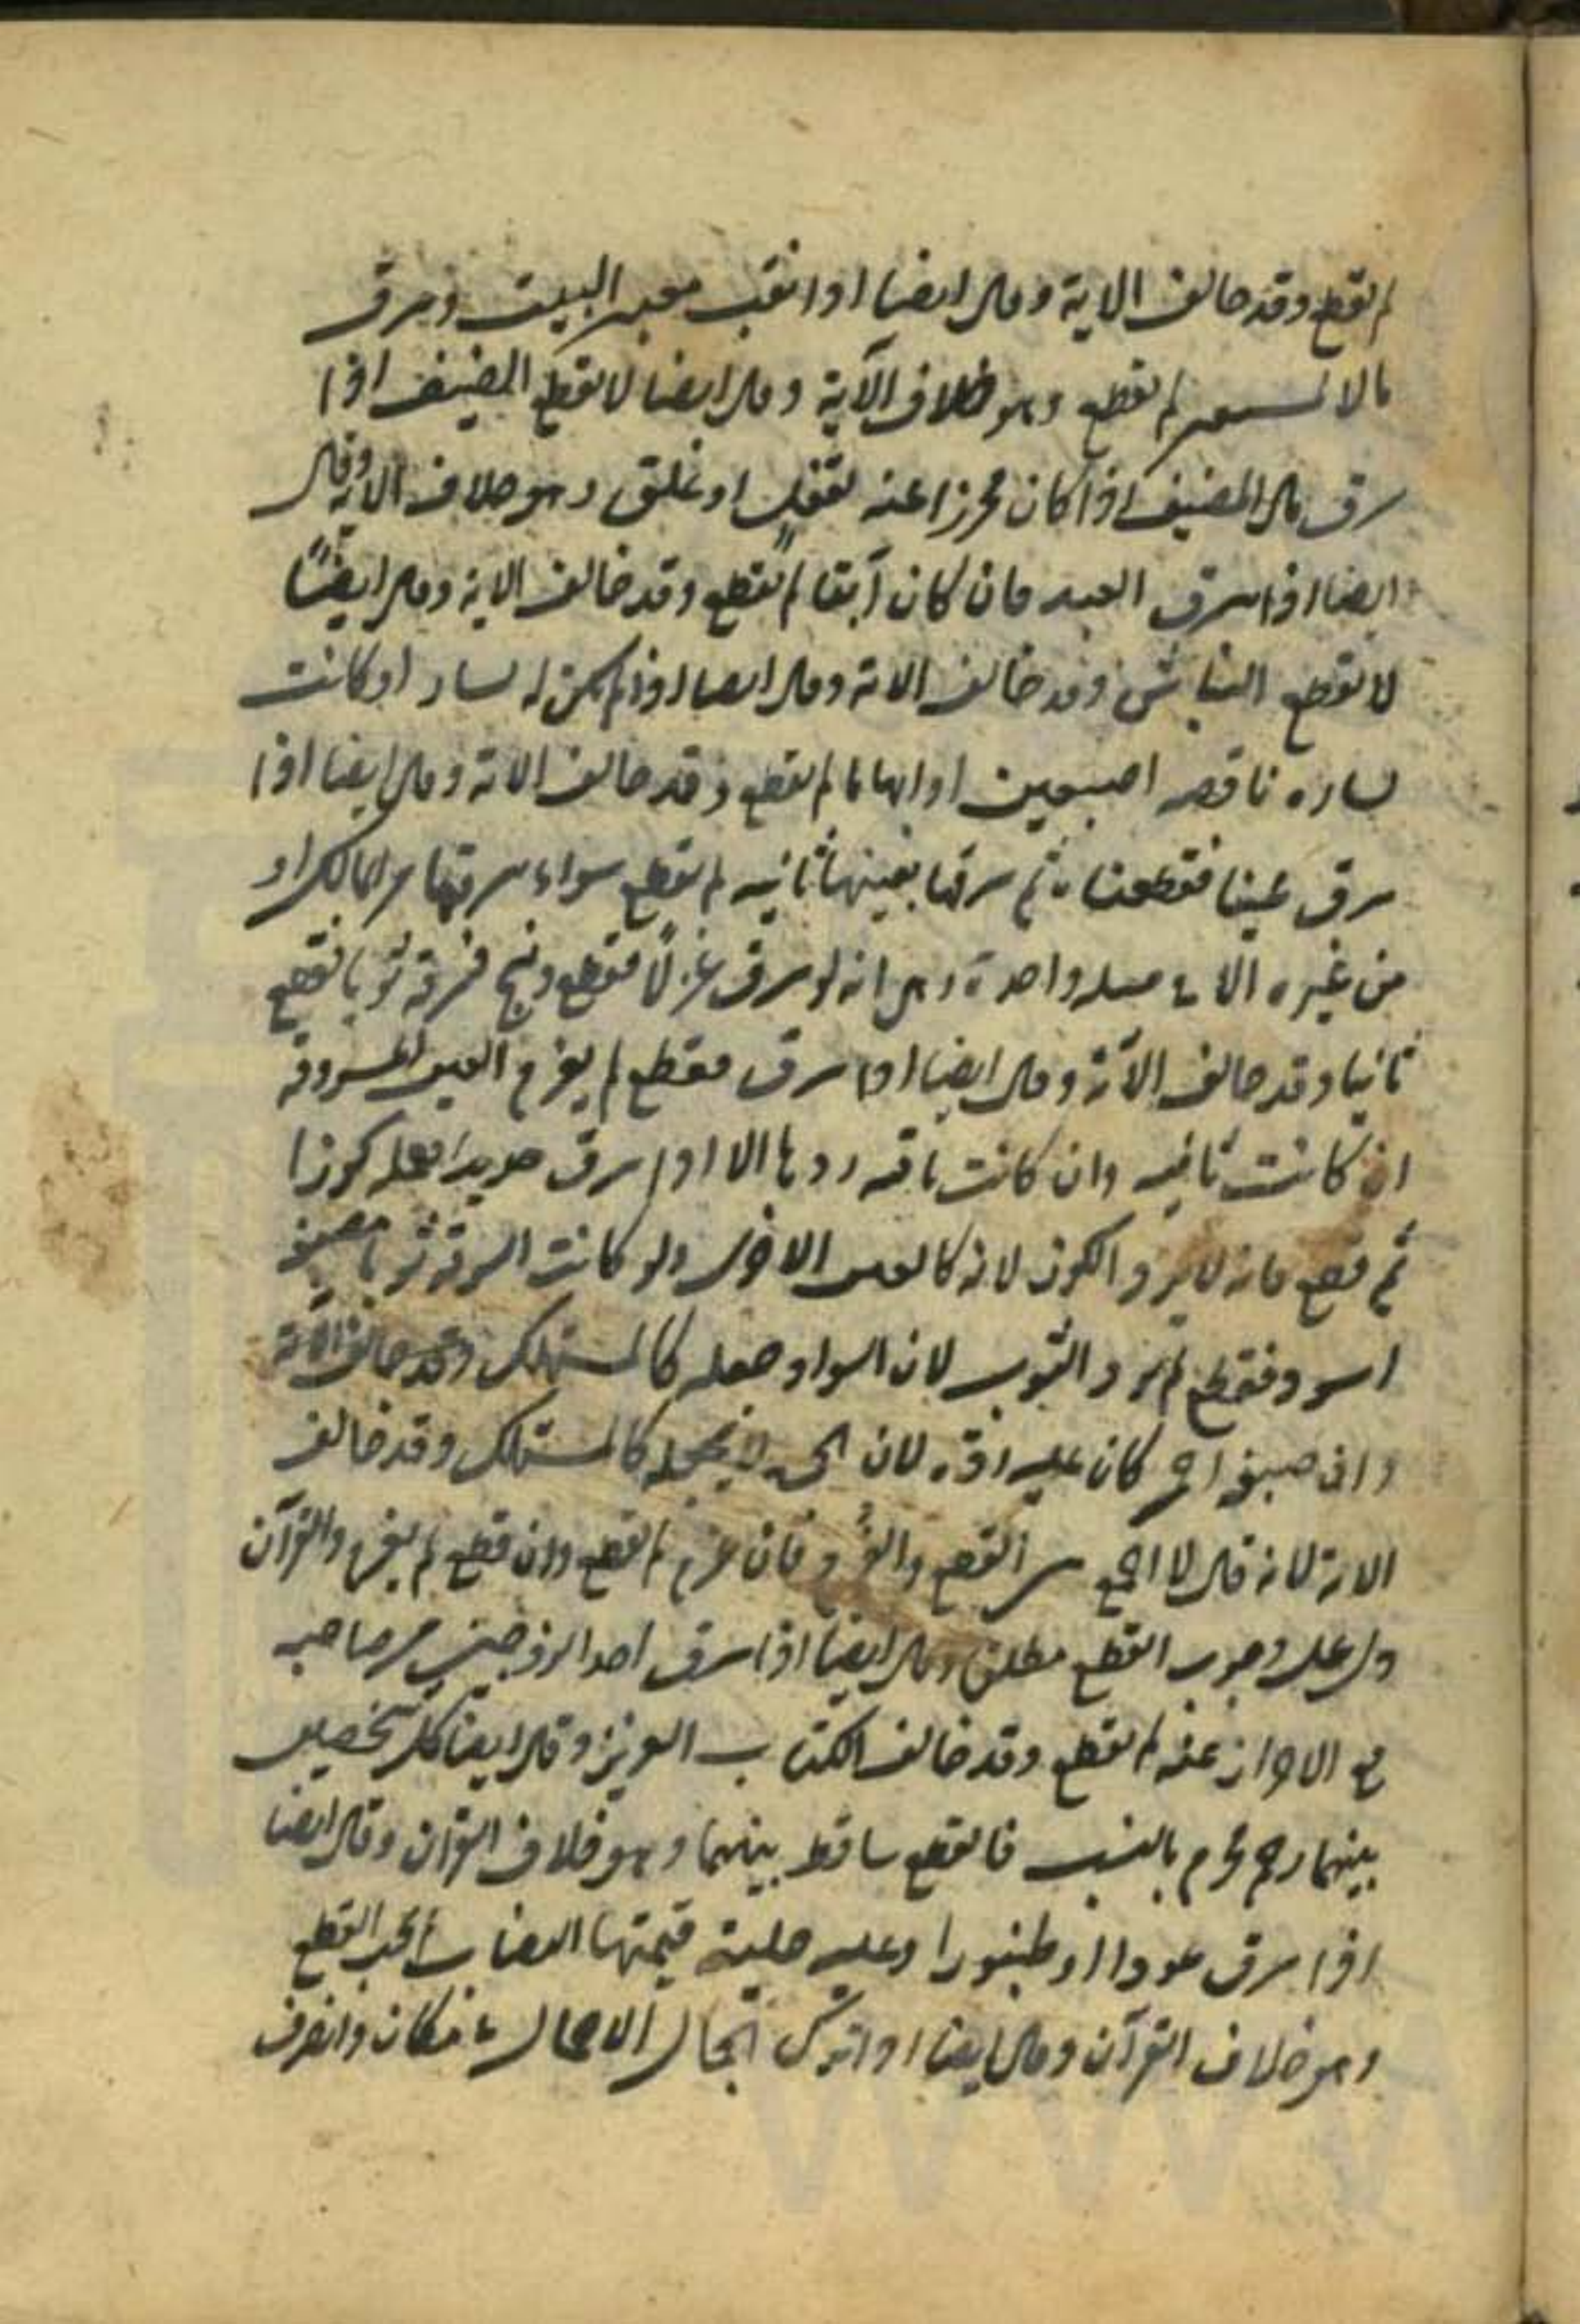 لم يقطع وقد خالف الاية وقال ايضا اذا نقب معير البيت وسرق
مال المستعير لم يقطع وهو خلاف الآية وقال ايضا لا يقطع الضيف اذا
سرق مال المضيف اذا كان محرزا عنه بقفل او غلق وهو خلاف الاية وقال
ايضا اذا سرق العبد فان كان آبقا لم يقطع وقد خالف الاية وقال ايضًا
لا يقطع النباش وقد خالف الاية وقال ايضا اذا لم يكن له يسار او كانت
يساره ناقصه اصبعين او ابهاما لم يقطع وقد خالف الاية وقال ايضا اذا
سرق عينا فقطعناه ثم سرقها بعينها ثانيه لم يقطع سواء سرقها من المالك او
من غيره الا في مسله واحدة وهي انه لو سرق غزلًا فقطع ونسج فسرقه ثوبا قطع
ثانيا وقد خالف الآية وقال ايضا اذا سرق فقطع لم يغرم العين المسروقه
ان كانت تالفه وان كانت باقيه ردها الا اذا سرق حديدا فعمله كوزا
ثم قطع فانه لا يرد الكوز لانه كالعين الاخرى ولو كانت السرقة ثوبا فصبغه
اسود فقطع لم يرد الثوب لان السواد جعله كالمستهلك وقد خالف الاية
وان صبغه احمر كان عليه رده لان الحمرة لا تجعله كالمستهلك وقد خالف
الاية لانه قال لا اجمع بين القطع والغرم فان غرم لم يقطع وان قطع لم يغرم والقرآن
دل على وجوب القطع مطلقا وقال ايضا اذا سرق احد الزوجين من صاحبه
مع الاحراز عنه لم يقطع وقد خالف الكتاب العزيز وقال ايضا كل شخصين
بينهما رحم محرم بالنسب فالقطع ساقط بينهما وهو خلاف القرآن وقال ايضا
اذا سرق عودا او طنبورا وعليه حلية قيمتها النصاب لم يجب القطع
وهو خلاف القرآن وقال ايضا اذا ترك الجمال الاحمال بمكان وانصرف